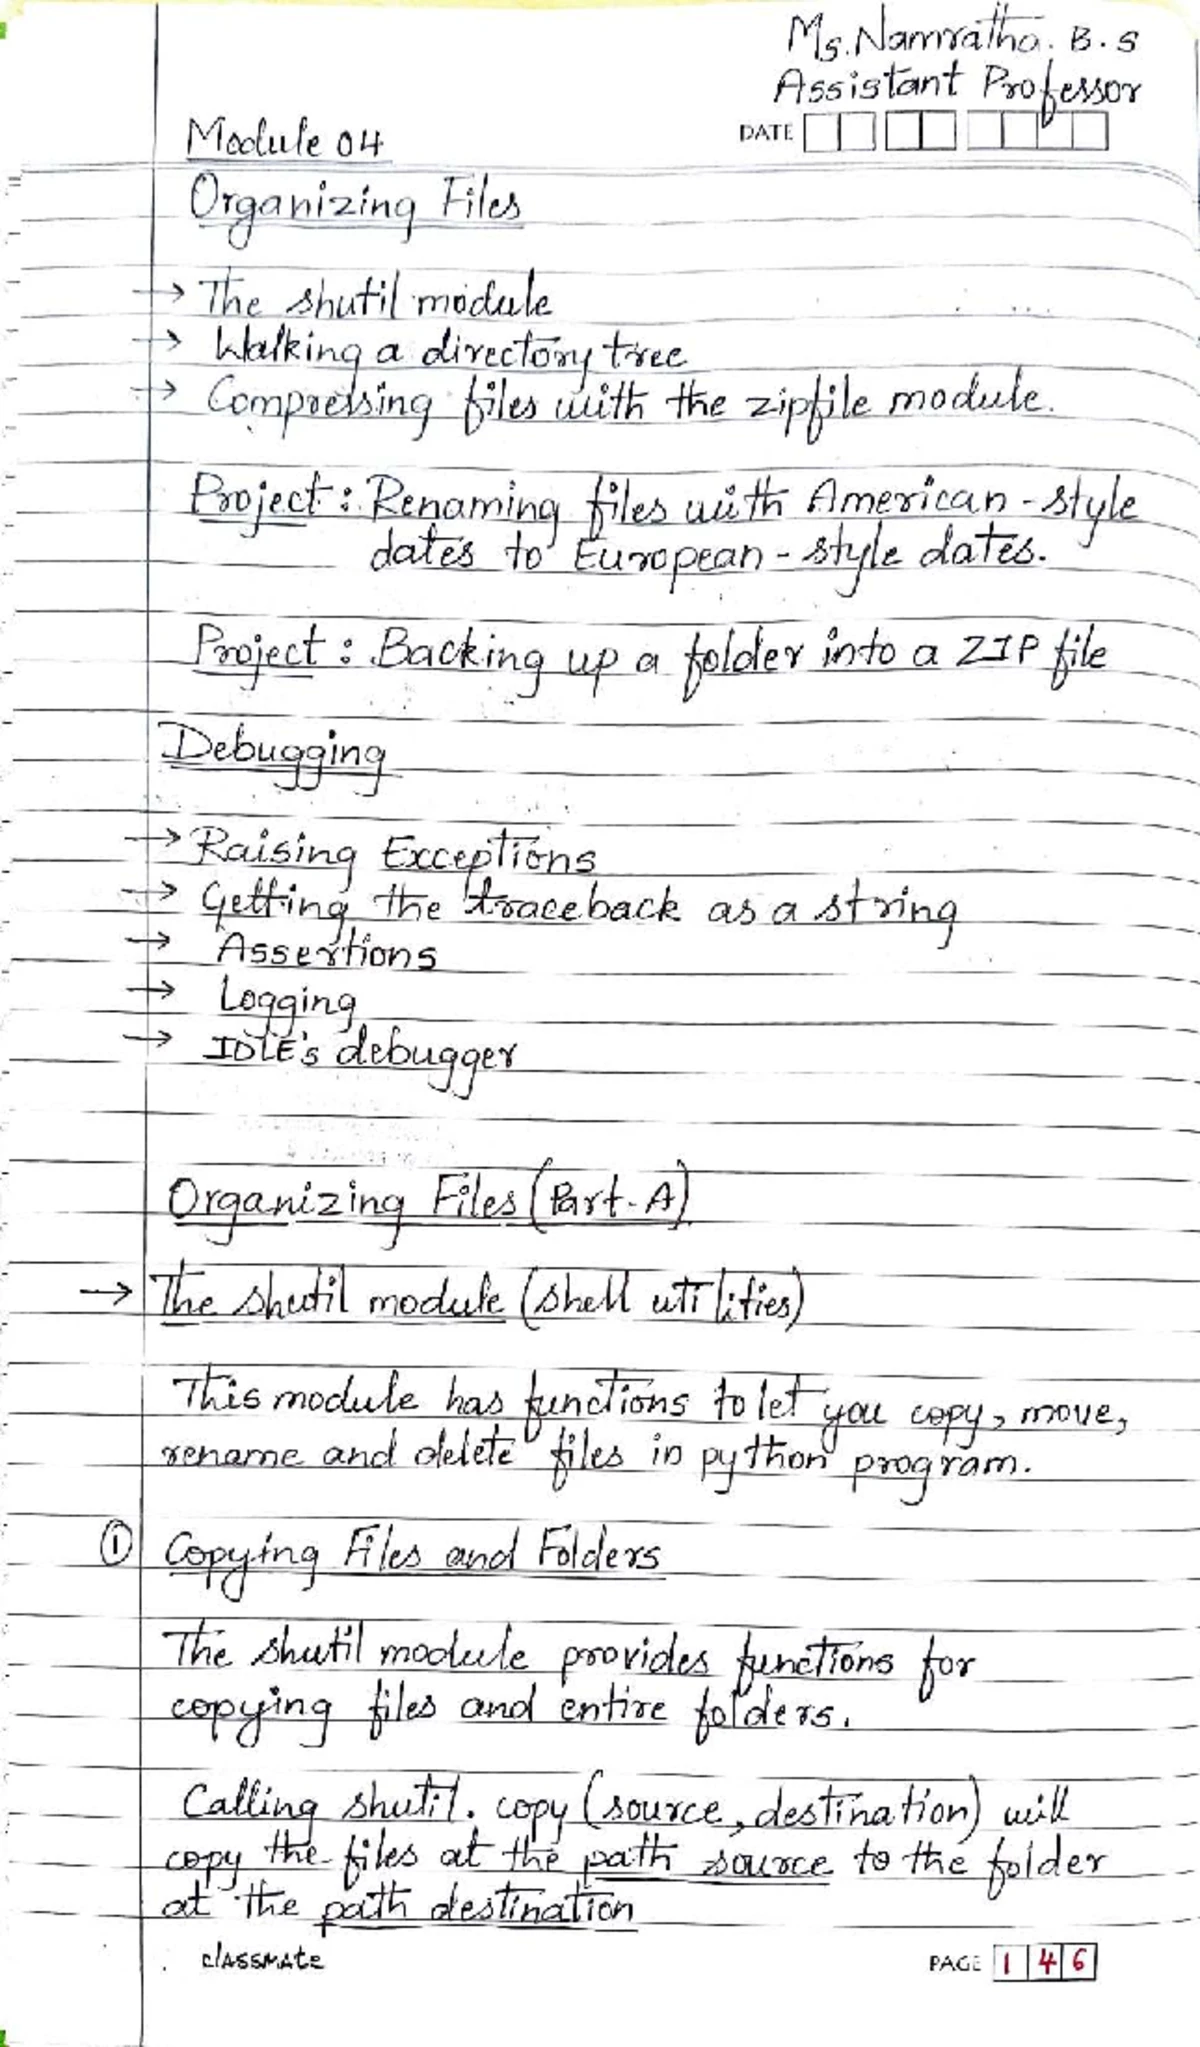 Ms. Namratha. B. S
Assistant Professor
DATE
Module 04
Organizing Files
→ The shutil module
→ Walking a directory tree
→ Compressing files with the zipfile module.
Project : Renaming files with American - style
dates to European - style dates.
Project : Backing up a folder into a ZIP file
Debugging
→ Raising Exceptions
→ Getting the traceback as a string
→ Assertions
→ Logging
→ IDLE's debugger
Organizing Files (Part - A)
→ The shutil module (shell utilities)
This module has functions to let you copy, move,
rename and delete files in python program.
① Copying Files and Folders
The shutil module provides functions for
copying files and entire folders.
Calling shutil. copy (source, destination) will
copy the files at the path source to the folder
at the path destination
classmate
PAGE 146